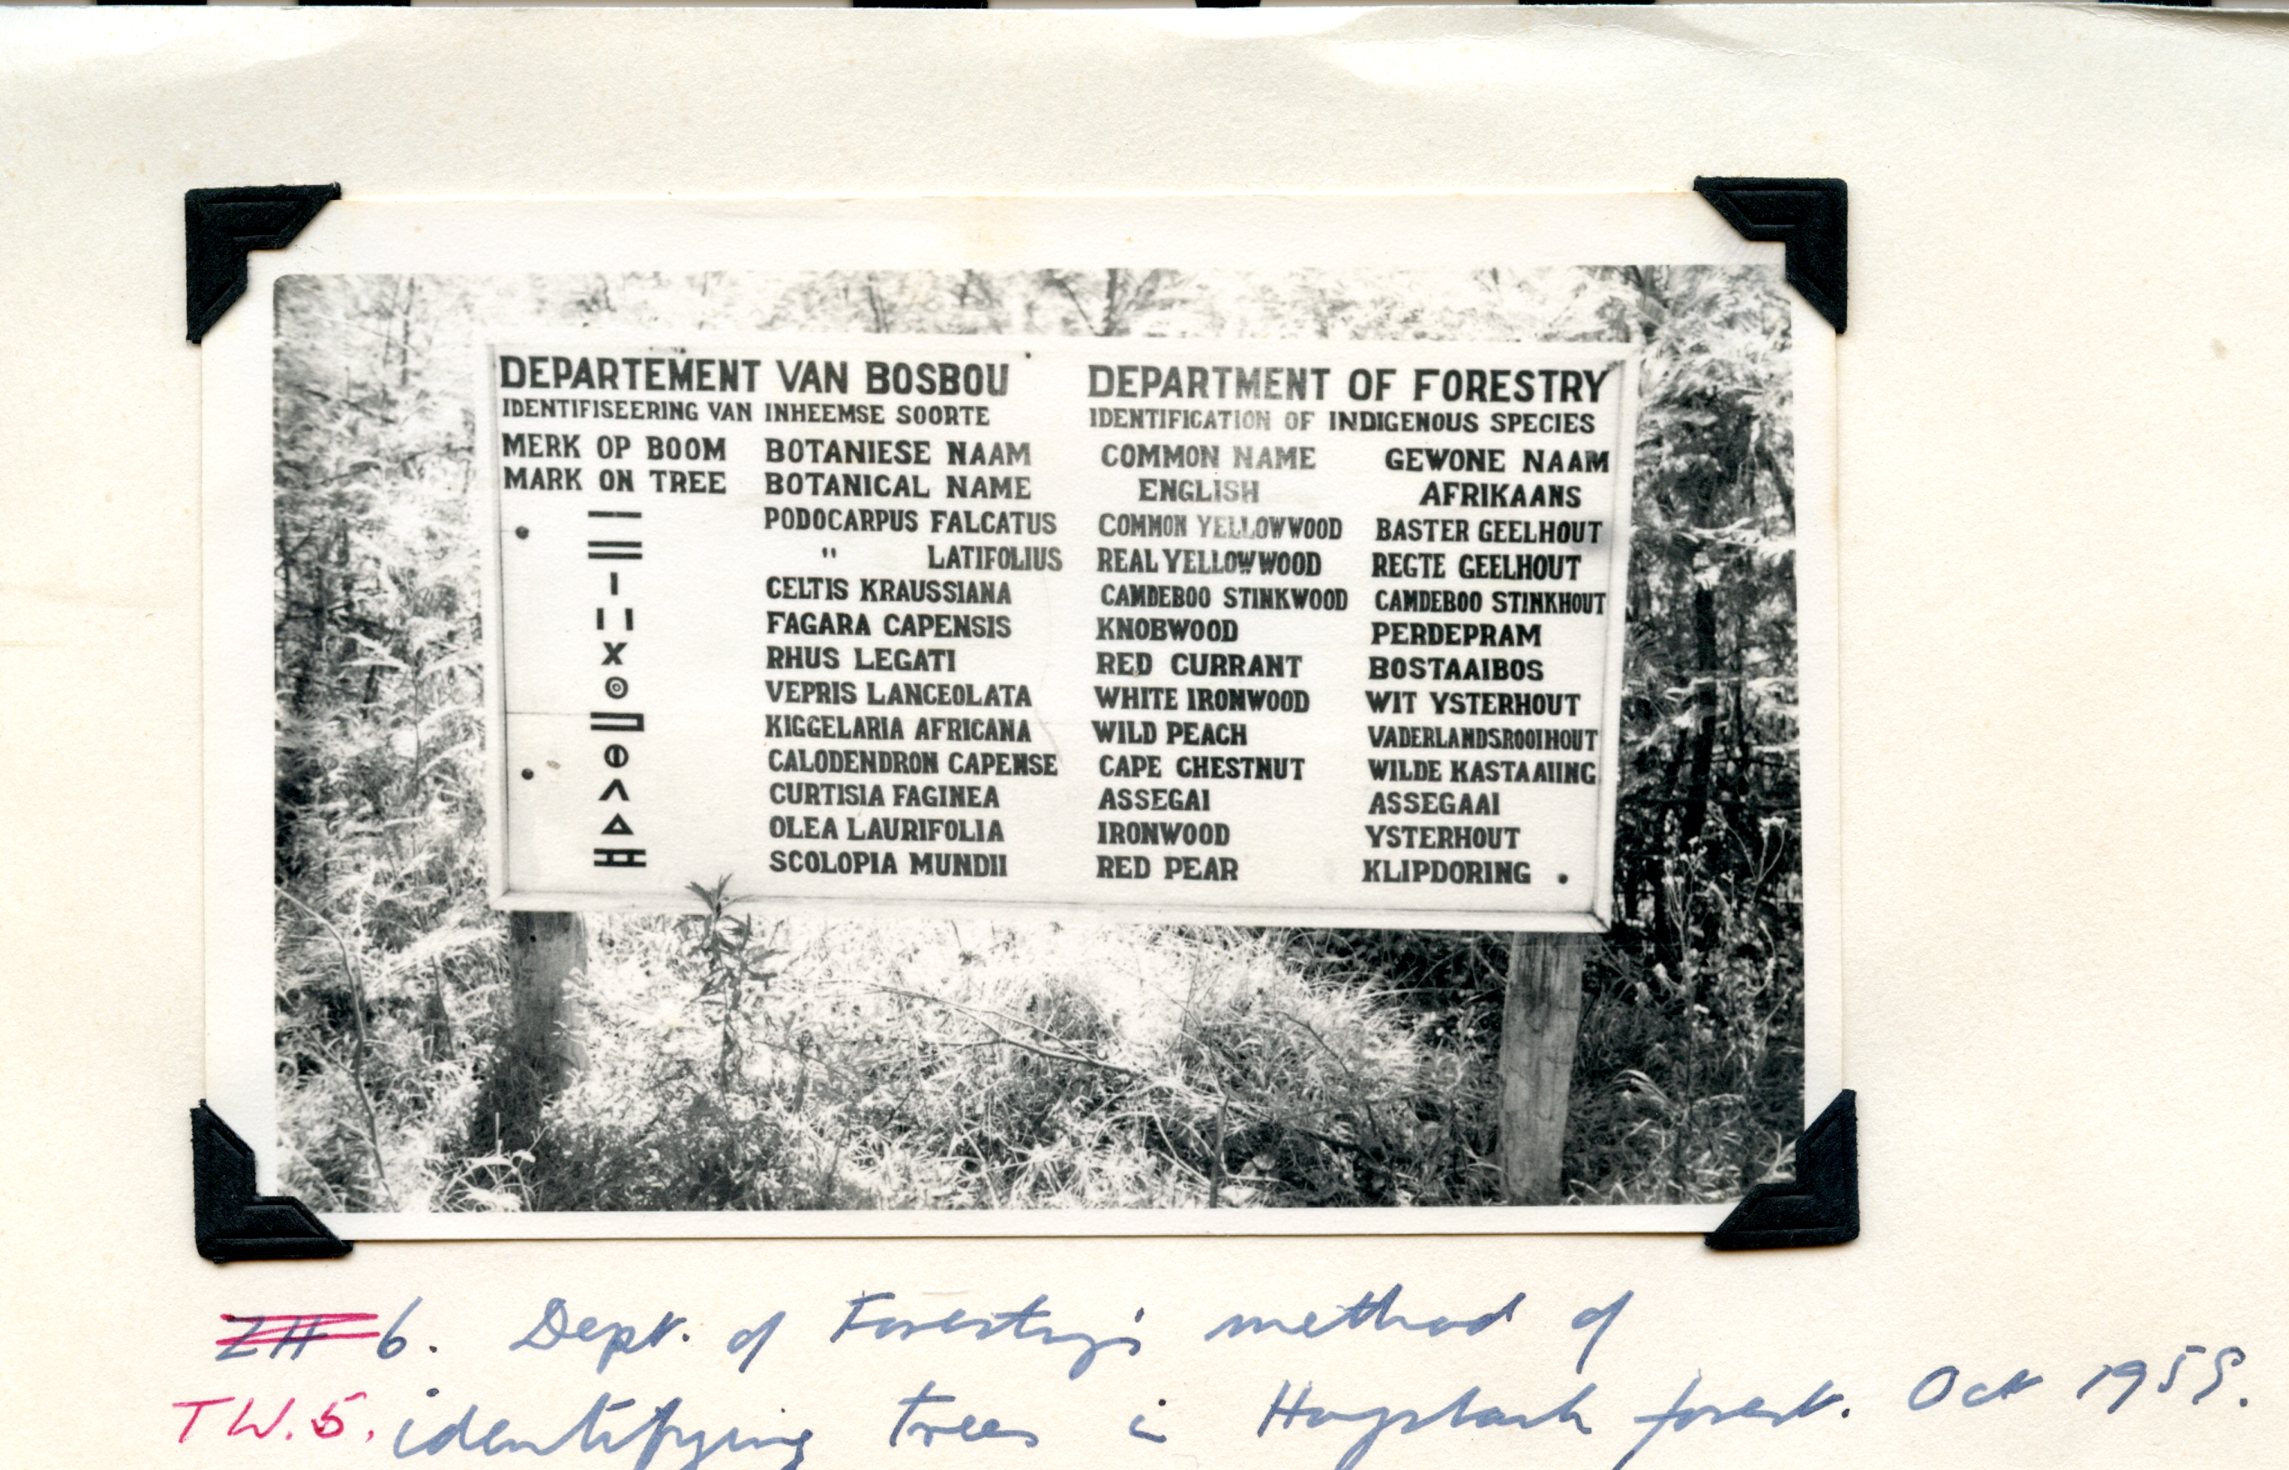 DEPARTEMENT VAN BOSBOU DEPARTMENT OF FORESTRY
IDENTIFISEERING VAN INHEEMSE SOORTE IDENTIFICATION OF INDIGENOUS SPECIES
MERK OP BOOM BOTANIESE NAAM COMMON NAME GEWONE NAAM
MARK ON TREE BOTANICAL NAME ENGLISH AFRIKAANS
PODOCARPUS FALCATUS COMMON YELLOWWOOD BASTER GEELHOUT
" LATIFOLIUS REAL YELLOWWOOD REGTE GEELHOUT
CELTIS KRAUSSIANA CAMDEBOO STINKWOOD CAMDEBOO STINKHOUT
FAGARA CAPENSIS KNOBWOOD PERDEPRAM
X RHUS LEGATI RED CURRANT BOSTAAIBOS
VEPRIS LANCEOLATA WHITE IRONWOOD WIT YSTERHOUT
KIGGELARIA AFRICANA WILD PEACH VADERLANDSROOIHOUT
CALODENDRON CAPENSE CAPE CHESTNUT WILDE KASTAAIING
CURTISIA FAGINEA ASSEGAI ASSEGAAI
OLEA LAURIFOLIA IRONWOOD YSTERHOUT
SCOLOPIA MUNDII RED PEAR KLIPDORING
ZH 6. Dept. of Forestry's method of
TW.5. identifying trees in Hogsback forest. Oct 1959.